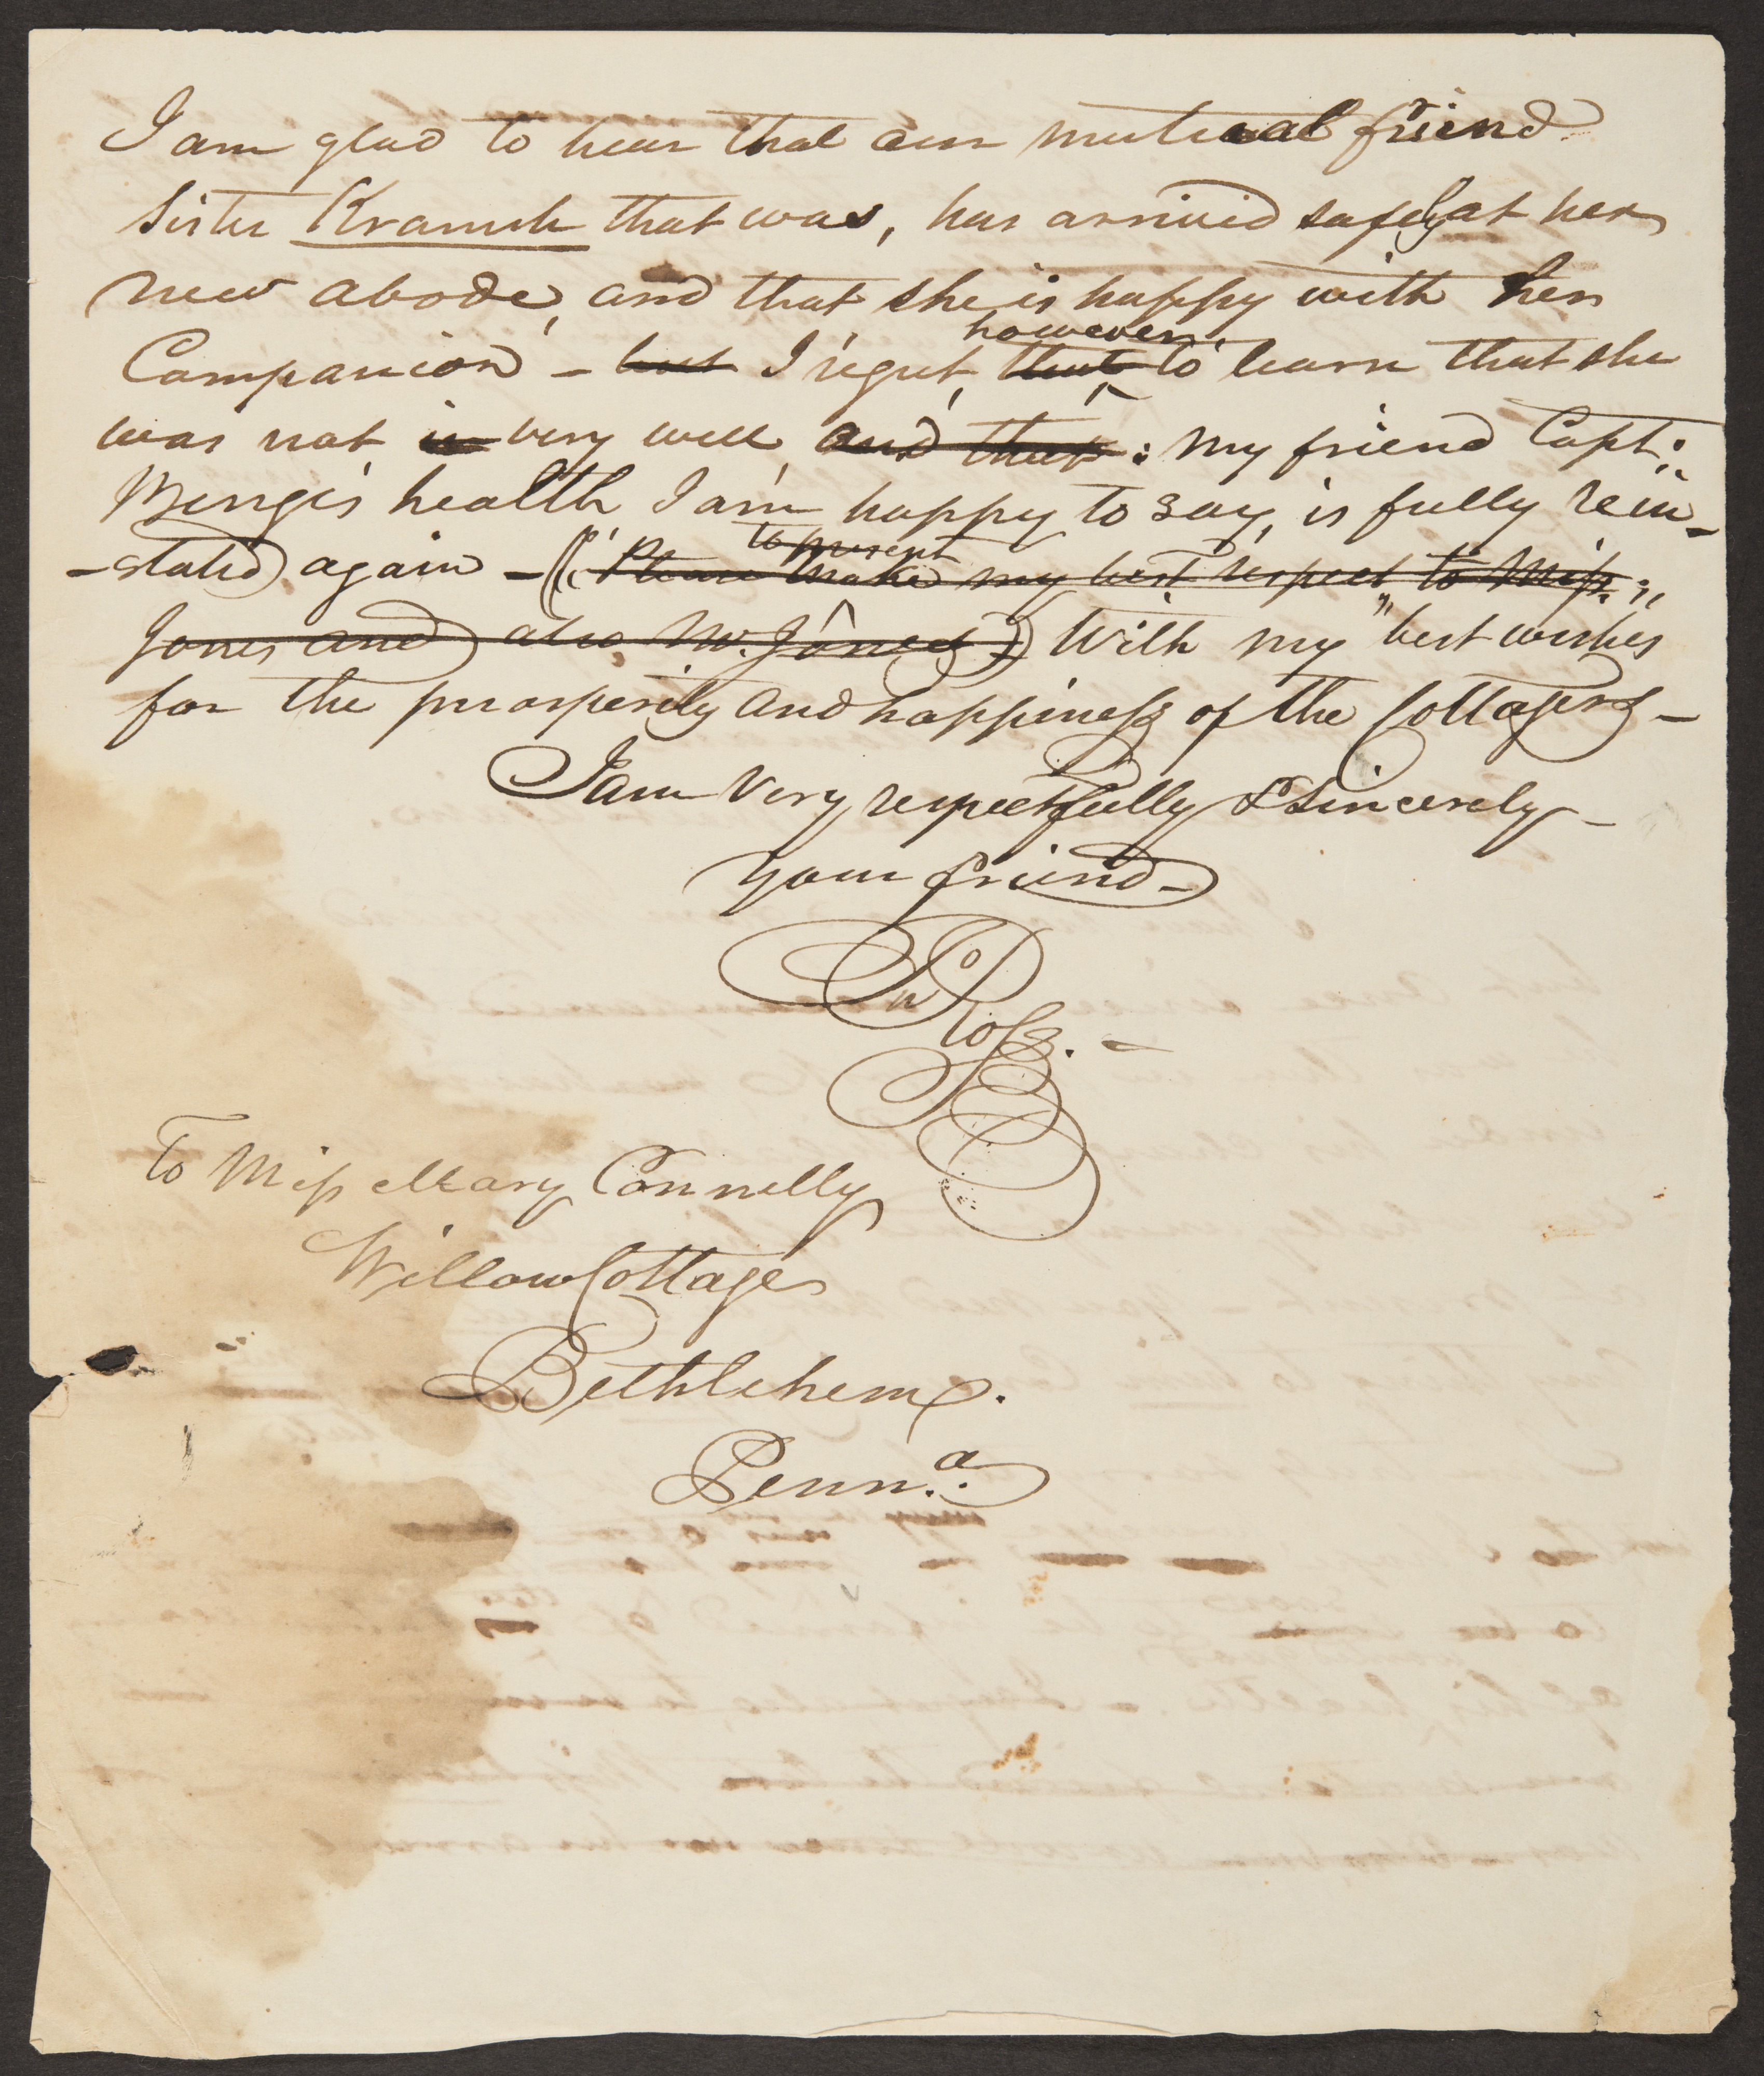 I am glad to hear that our mutual friend
Sister Kramsh that was, has arrived safely at her
new abode, and that she is happy with her
however
Companion – but I regret, that to learn that she
was not in very well and that : my friend Capt:
Minge's health I am happy to say, is fully rein-
to present
-stated again – Please make my best respect to Miss
Jones and also Mr. Jones With my best wishes
for the prosperity and happiness of the Cottagers –
I am very respectfully & sincerely –
your friend –
Jno Ross. –
To Miss Mary Connelly
Willow Cottage
Bethlehem.
Penn.a